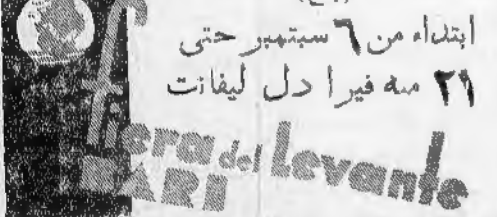 ابتداء من ٦ سبتمبر حتى
٢١ منه فيرا دل ليفانت
fiera del Levante
BARI